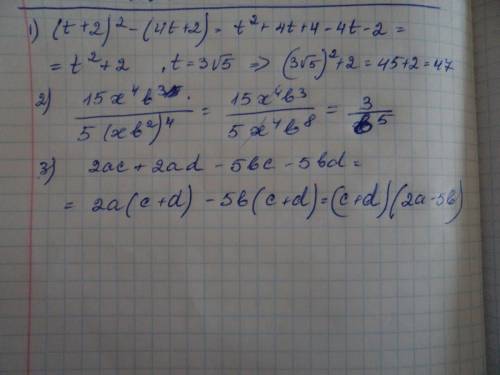 1) (t+2)² - (4t+2) = t² + 4t + 4 - 4t - 2 =
= t² + 2 , t = 3√5 ⇒ (3√5)² + 2 = 45 + 2 = 47
2) 15x⁴b³ / 5(xb²)⁴ = 15x⁴b³ / 5x⁴b⁸ = 3 / b⁵
3) 2ac + 2ad - 5bc - 5bd =
= 2a(c+d) - 5b(c+d) = (c+d)(2a-5b)